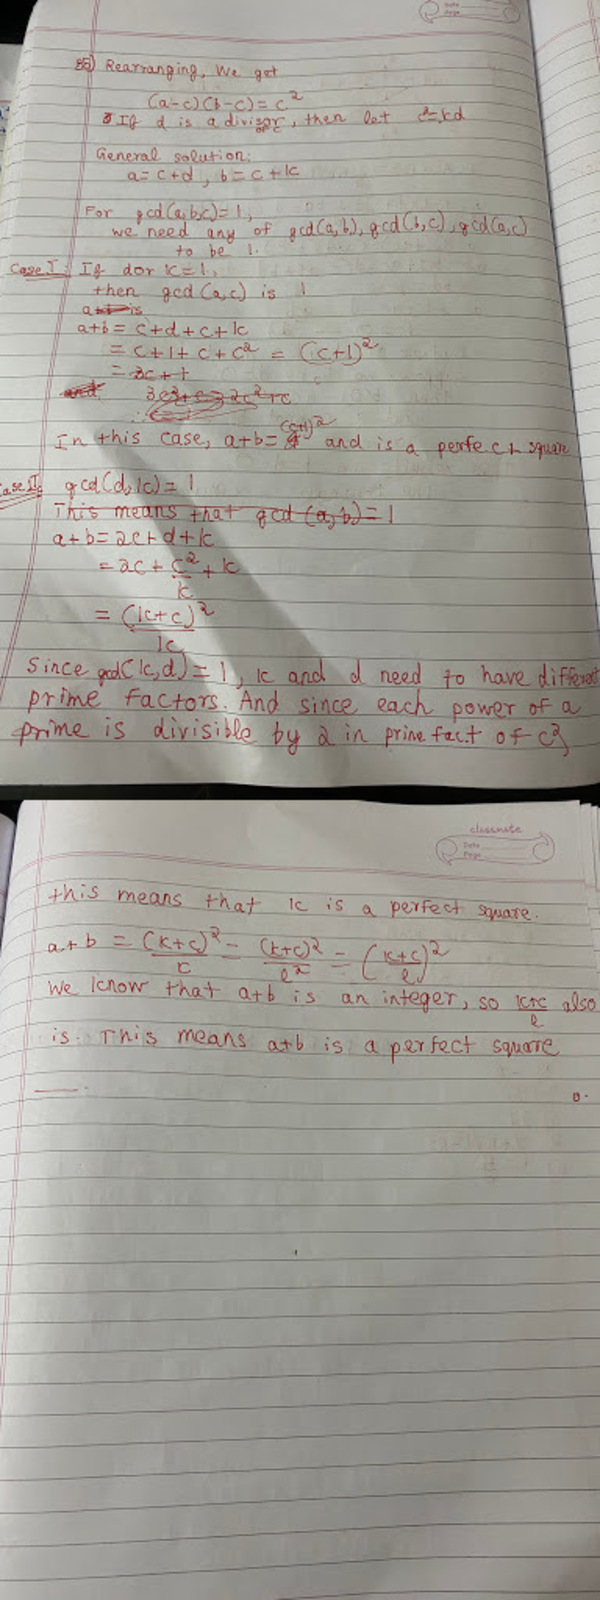 B5) Rearranging, We get
(a-c)(b-c)=c²
If d is a divisor, then let c²=kd
General solution:
a=c+d, b=c+k
For gcd(a,b,c)=1,
we need any of gcd(a,b), gcd(b,c), gcd(a,c)
to be 1.
Case I: If d or k=1,
then gcd(a,c) is 1
a+b = c+d+c+k
= c+1+c+c² = (c+1)²
= 2c+1
and
In this case, a+b=(c+1)² and is a perfect square
Case II: gcd(d,k)=1
This means that gcd(a,b)=1
a+b=2c+d+k
=2c+c²/k+k
=(k+c)²/k
Since gcd(k,d)=1, k and d need to have different
prime factors. And since each power of a
prime is divisible by 2 in prime fact of c²,
classmate
Date
Page
this means that k is a perfect square.
a+b = (k+c)²/k = (k+c)²/l² = ((k+c)/l)²
We know that a+b is an integer, so (k+c)/l also
is. This means a+b is a perfect square